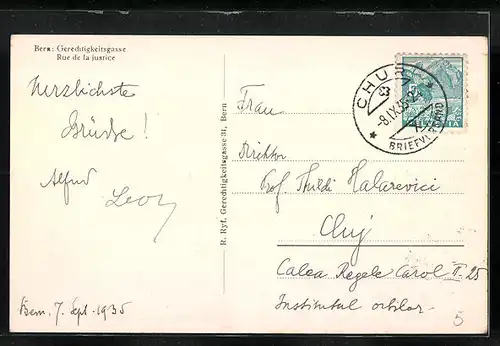 Bern: Gerechtigkeitsgasse
Rue de la justice
Herzlichste
Grüsse!
Alfred
Bern, 7. Sept. 1935
R. Ryf, Gerechtigkeitsgasse 31, Bern
CHUR
-8.IX.35-22
BRIEFVERSAND
HELVETIA
Frau
Direktor
Prof. Thildi Halarevici
Cluj
Calea Regele Carol II. 25
Institutul orbilor
5